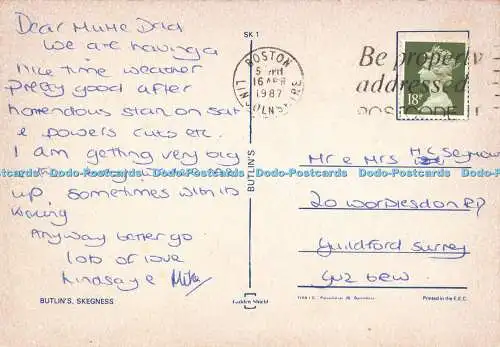 Dear Mum e Dad
We are having a
nice time weather
pretty good after
horrendous start on sat
e powers cuts etc.
I am getting very big
up sometimes with in
Anyway better go
lots of love
Lindsay e Mike
BUTLIN'S, SKEGNESS
SK 1
BUTLIN'S
Golden Shield
BOSTON
5 PM
16 APR
1987
LINCOLNSHIRE
Be properly
addressed
POSTCODE
18P
Mr e Mrs
20 Worplesdon RD
Guildford Surrey
GU2 6EW
Printed in the E.E.C.
Dodo-Postcards Dodo-Postcards Dodo-Postcards Dodo-Postcards Dodo-Postcards